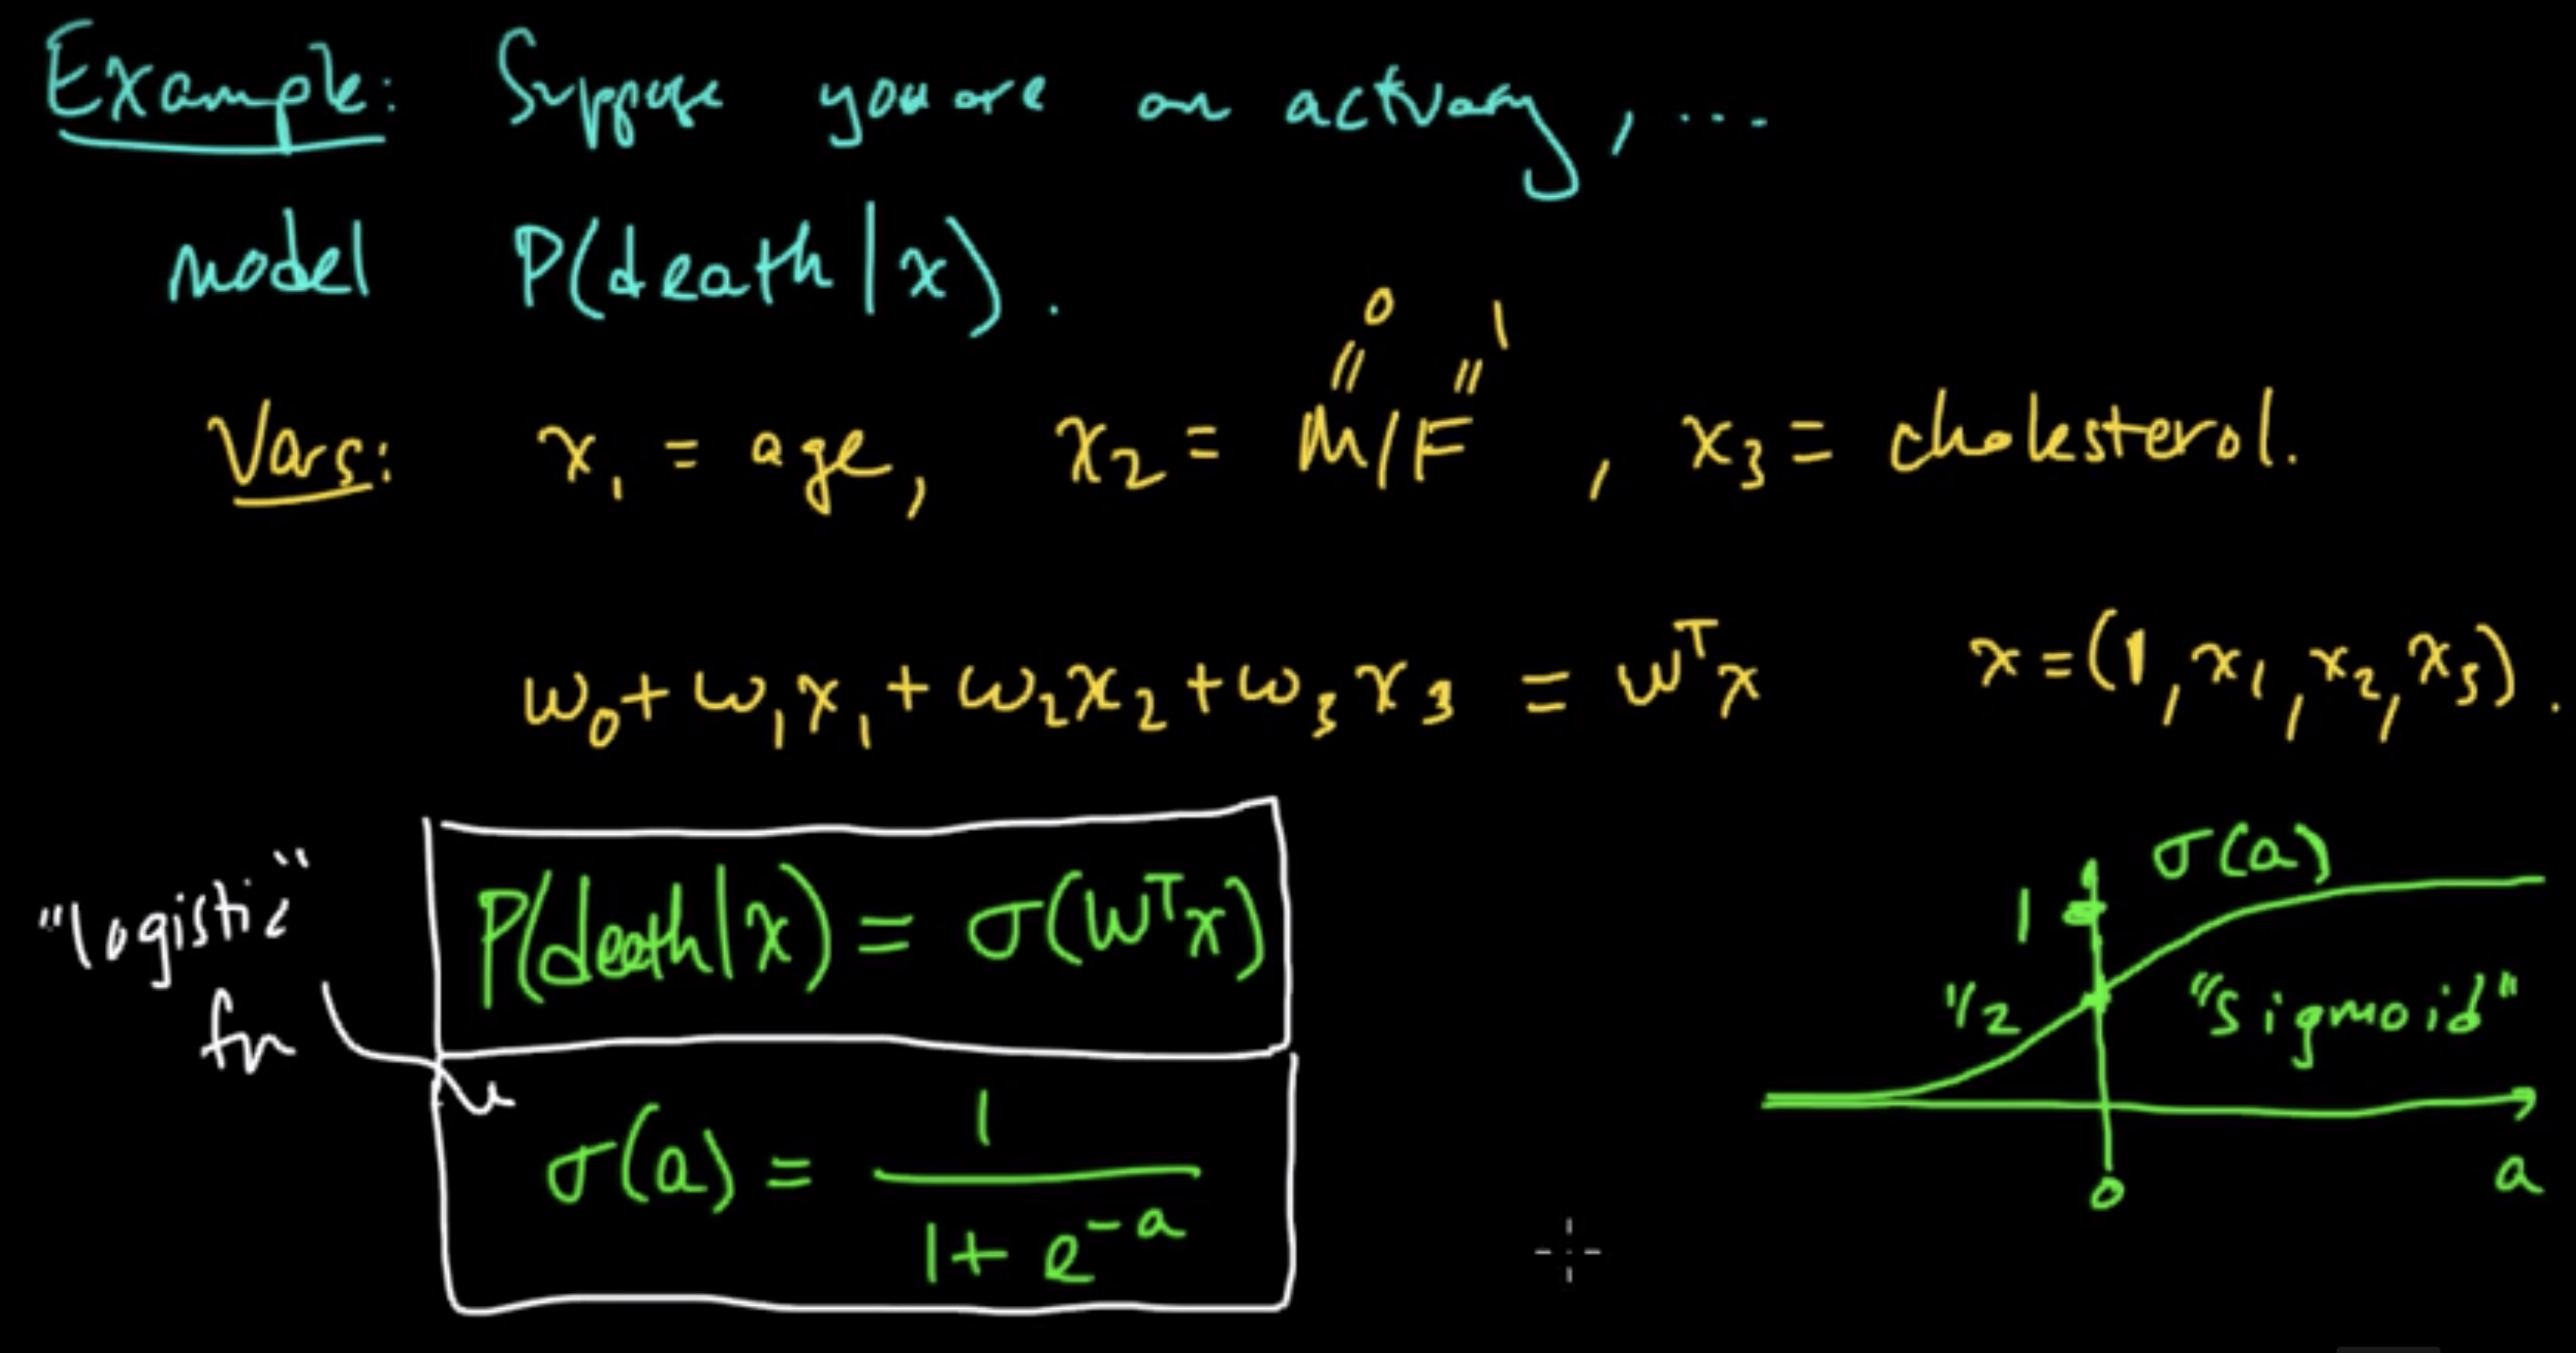 Example: Suppose you are an actuary, ...
model P(death|x).
0 1
" "
Vars: x₁ = age, x₂ = M/F, x₃ = cholesterol.
w₀ + w₁x₁ + w₂x₂ + w₃x₃ = wᵀx x = (1, x₁, x₂, x₃).
"logistic" fn
P(death|x) = σ(wᵀx)
σ(a) = 1 / (1 + e^(-a))
σ(a)
1
1/2 "sigmoid"
0 a